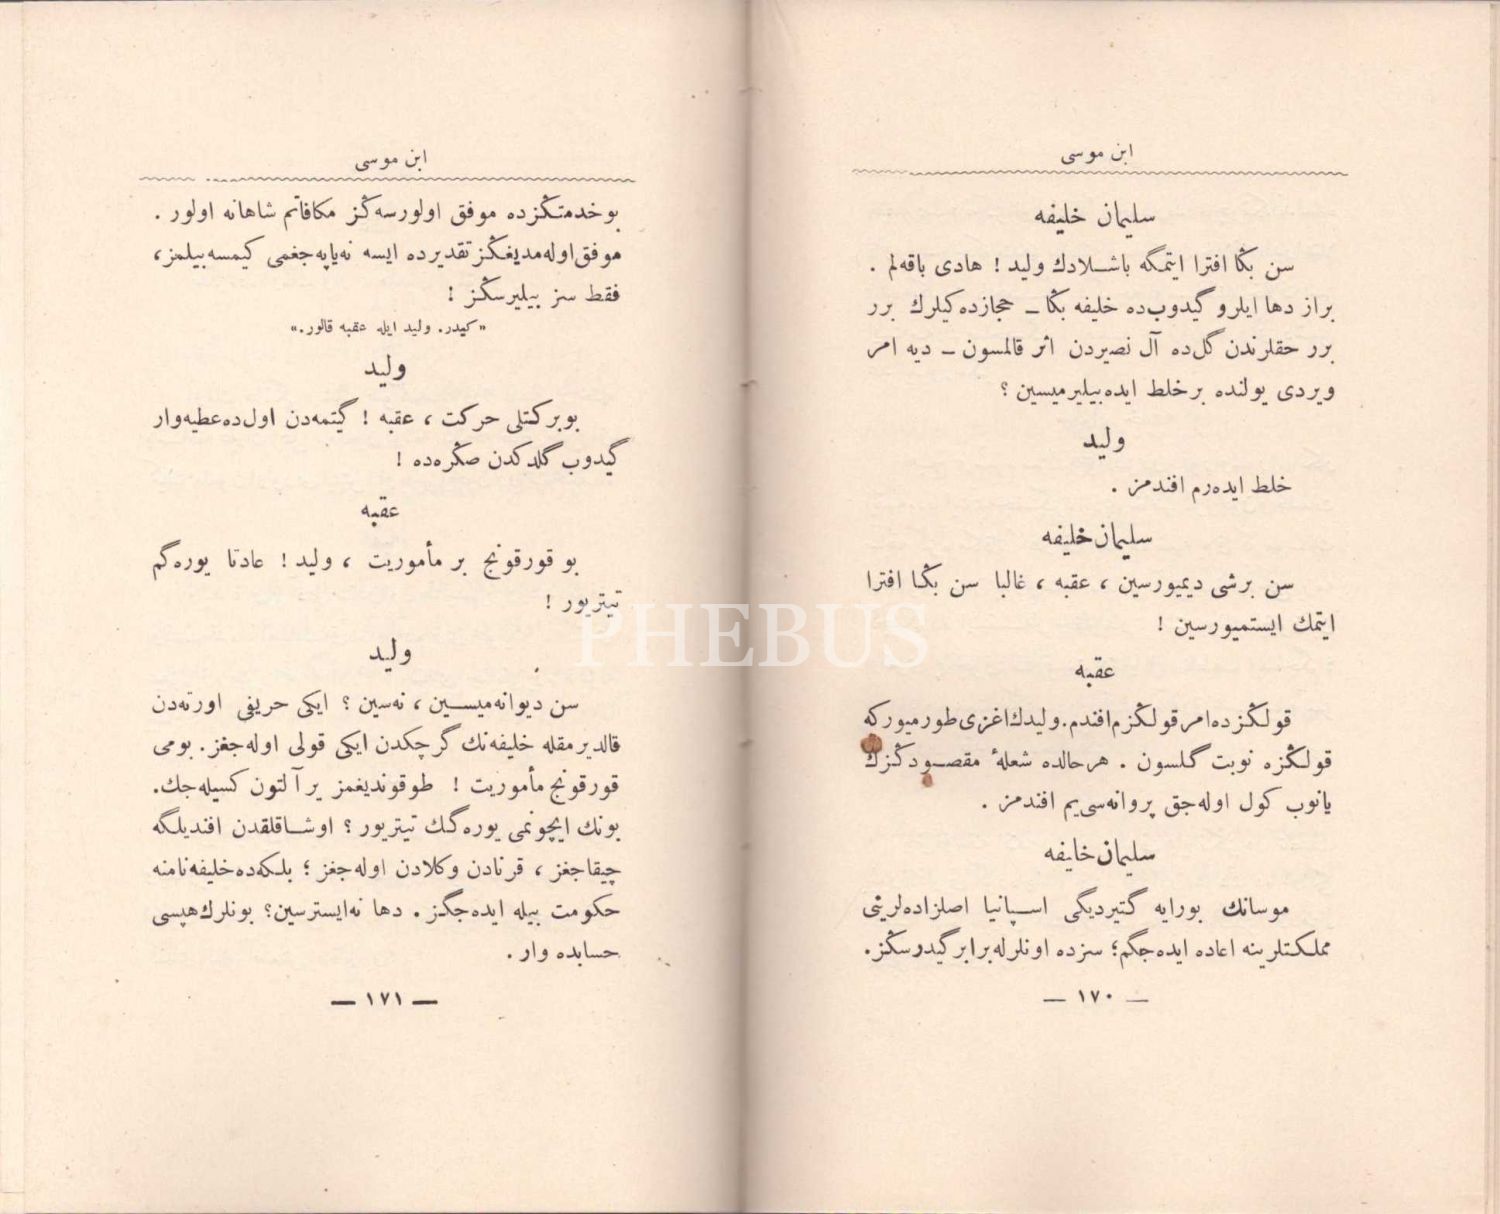 ابن موسی
سلیمان خلیفه
سن بڭا افترا ایتمگه باشلادك ولید ! هادی باقه‌لم .
براز دها ایلرو گیدوب‌ده خلیفه بڭا ــ حجازده‌کیلرك برر
برر حقلرندن گل‌ده آل نصیردن اثر قالمسون ــ دیه امر
ویردی یولنده برخلط ایده‌بیلیرمیسین ؟
ولید
خلط ایده‌رم افندمز .
سلیمان خلیفه
سن برشی دیمیورسین ، عقبه ، غالبا سن بڭا افترا
ایتمك ایستمیورسین !
عقبه
قولڭزده‌امر قولڭزم‌افندم . ولیدك‌اغزی‌طورمیورکه
قولڭزه نوبت گلسون . هرحالده شعلهٔ مقصودڭزك
یانوب کول اوله‌جق پروانه‌سی‌یم افندمز .
سلیمان خلیفه
موسانك بورایه گتیردیگی اسپانیا اصلزاده‌لرینی
مملکتلرینه اعاده ایده‌جگم؛ سزده اونلرله‌برابرگیدرسڭز.
— ١٧٠ —
ابن موسی
بوخدمتڭزده موفق اولورسه‌ڭز مکافاتم شاهانه اولور .
موفق‌اوله‌مدیغڭزتقدیرده ایسه نه‌یاپه‌جغمی کیمسه‌بیلمز،
فقط سز بیلیرسڭز !
«کیدر. ولید ایله عقبه قالور.»
ولید
بوبرکتلی حرکت ، عقبه ! گیتمه‌دن اول‌ده‌عطیه‌وار
گیدوب گلدکدن صڭره‌ده !
عقبه
بو قورقونج بر مأموریت ، ولید ! عادتا یوره‌گم
تیتریور !
ولید
سن دیوانه‌میسین ، نه‌سین ؟ ایکی حریفی اورته‌دن
قالدیرمقله خلیفه‌نك گرچکدن ایکی قولی اوله‌جغز. بومی
قورقونج مأموریت ! طوقوندیغمز یرآلتون کسیله‌جك.
بونك ایچونمی یوره‌گك تیتریور ؟ اوشاقلقدن افندیلگه
چیقاجغز ، قرنادن وکلادن اوله‌جغز ؛ بلکه‌ده‌خلیفه‌نامنه
حکومت بیله ایده‌جگز . دها نه‌ایسترسین؟ بونلرك‌هپسی
حسابده وار .
— ١٧١ —
PHEBUS